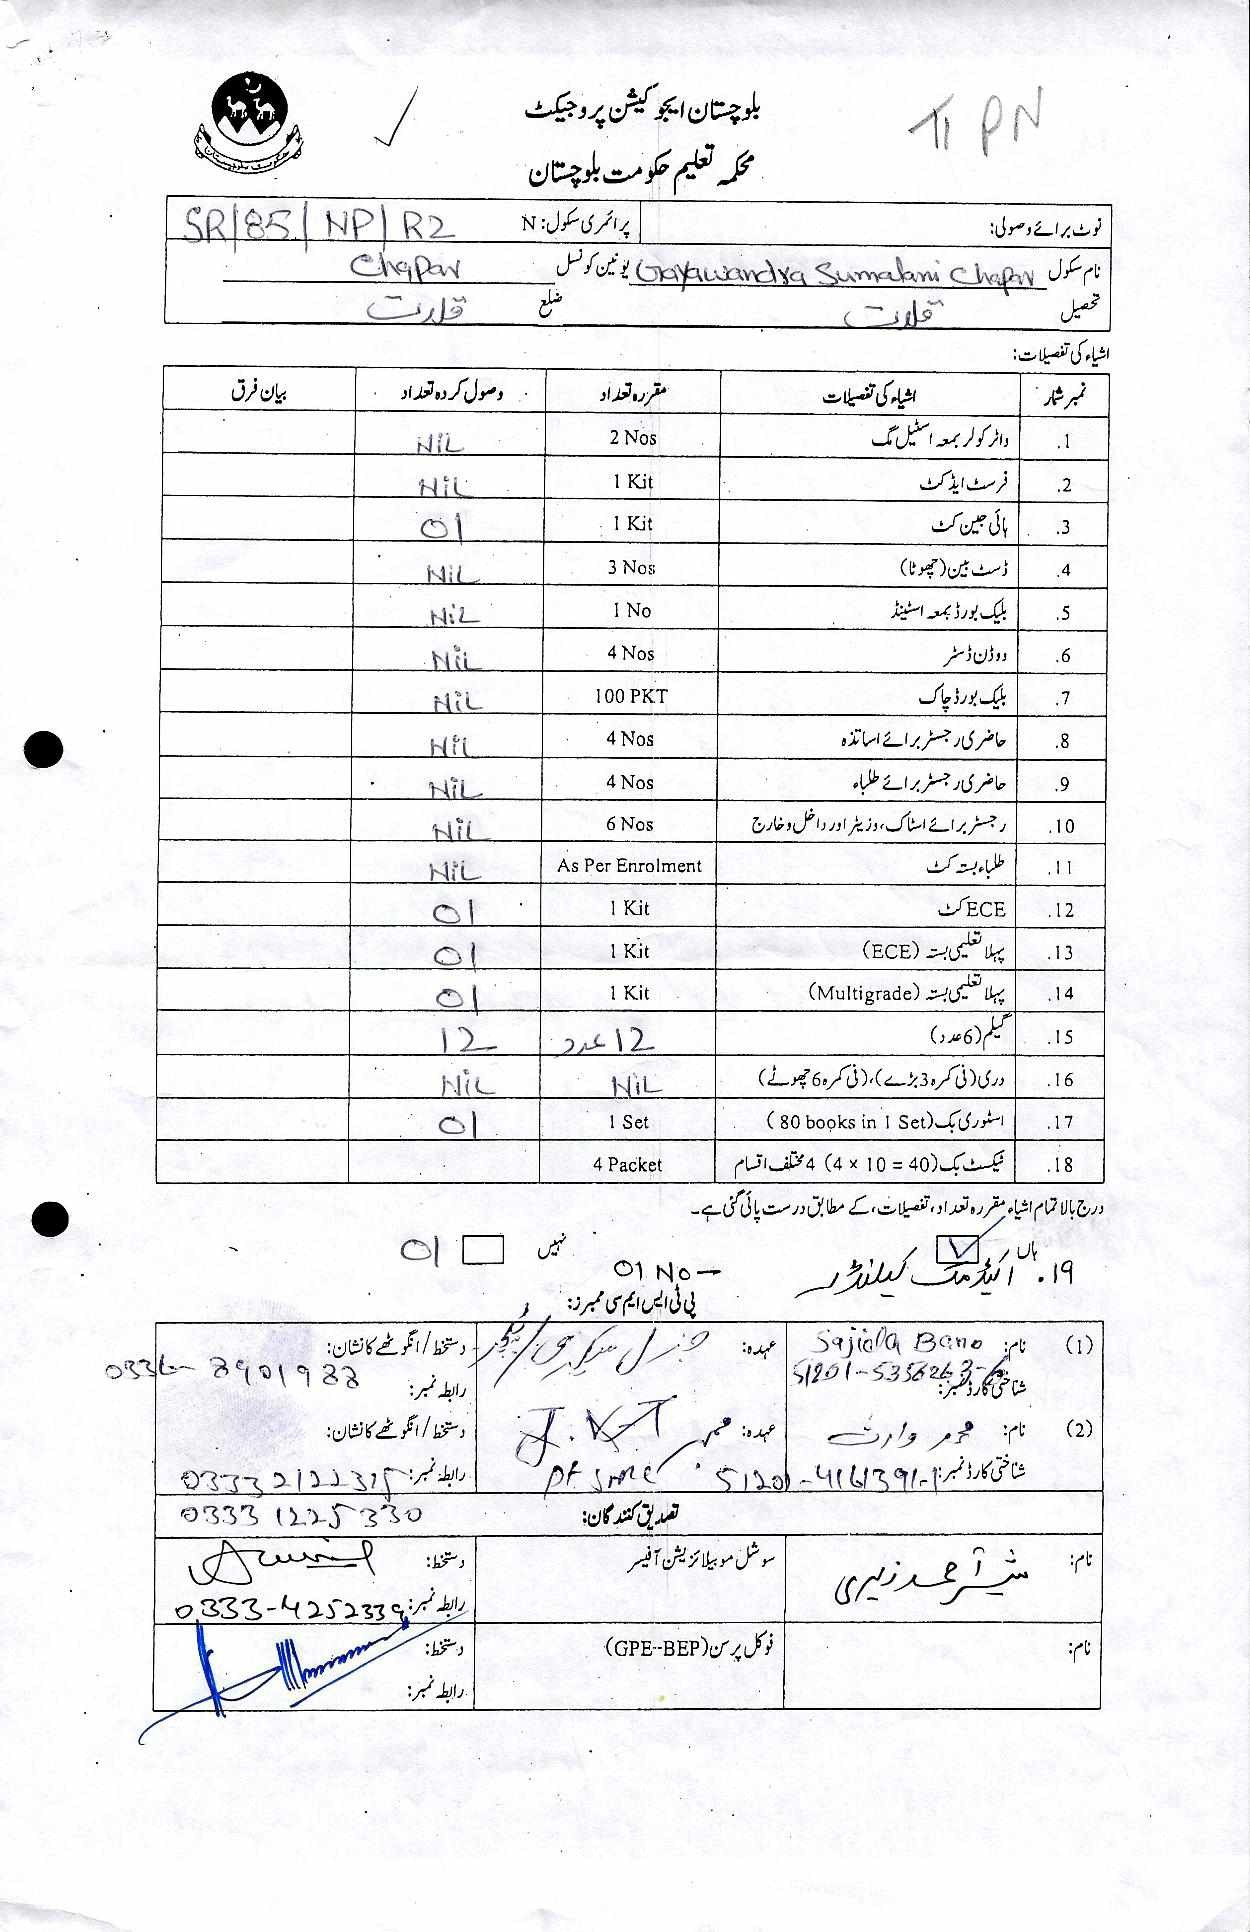 بلوچستان ایجوکیشن پروجیکٹ
TI PN
محکمہ تعلیم حکومت بلوچستان
حکومت بلوچستان
نوٹ برائے وصولی: پرائمری سکول: N SR/85/NP/R2
نام سکول Garawandra Sumalani Chapar یونین کونسل Chapar
تحصیل قلات ضلع قلات
اشیاء کی تفصیلات:
نمبر شمار اشیاء کی تفصیلات مقررہ تعداد وصول کردہ تعداد بیان فرق
1. واٹر کولر بمعہ اسٹیل مگ 2 Nos Nil
2. فرسٹ ایڈ کٹ 1 Kit Nil
3. ہائی جین کٹ 1 Kit 01
4. ڈسٹ بین (چھوٹا) 3 Nos Nil
5. بلیک بورڈ بمعہ اسٹینڈ 1 No Nil
6. ووڈن ڈسٹر 4 Nos Nil
7. بلیک بورڈ چاک 100 PKT Nil
8. حاضری رجسٹر برائے اساتذہ 4 Nos Nil
9. حاضری رجسٹر برائے طلباء 4 Nos Nil
10. رجسٹر برائے اسٹاک، وزیٹر اور داخل و خارج 6 Nos Nil
11. طلباء بستہ کٹ As Per Enrolment Nil
12. ECE کٹ 1 Kit 01
13. پہلا تعلیمی بستہ (ECE) 1 Kit 01
14. پہلا تعلیمی بستہ (Multigrade) 1 Kit 01
15. گیلم (6 عدد) 12 عدد 12
16. دری (فی کمرہ 3 بڑے)، (فی کمرہ 6 چھوٹے) Nil Nil
17. اسٹوری بک (80 books in 1 Set) 1 Set 01
18. ٹیکسٹ بک (4 × 10 = 40) 4 مختلف اقسام 4 Packet
درج بالا تمام اشیاء مقررہ تعداد، تفصیلات، کے مطابق درست پائی گئی ہے۔
ہاں نہیں 01
۱۹. اکیڈمک کیلنڈر 01 No
پی ٹی ایس ایم سی ممبرز:
(1) نام: Sajida Bano عہدہ: جنرل سیکریٹری/ٹیچر دستخط/انگوٹھے کا نشان:
شناختی کارڈ نمبر: 51201-5356263-6 رابطہ نمبر: 0336-8901988
(2) نام: محمد وارث عہدہ: ممبر J.V.T دستخط/انگوٹھے کا نشان:
شناختی کارڈ نمبر: 51201-4161391-1 PTSMC رابطہ نمبر: 03332122315
تصدیق کنندگان: 03331225330
نام: شیر احمد زہری سوشل موبیلائزیشن آفیسر دستخط:
رابطہ نمبر: 0333-4252339
نام: فوکل پرسن (GPE--BEP) دستخط:
رابطہ نمبر: